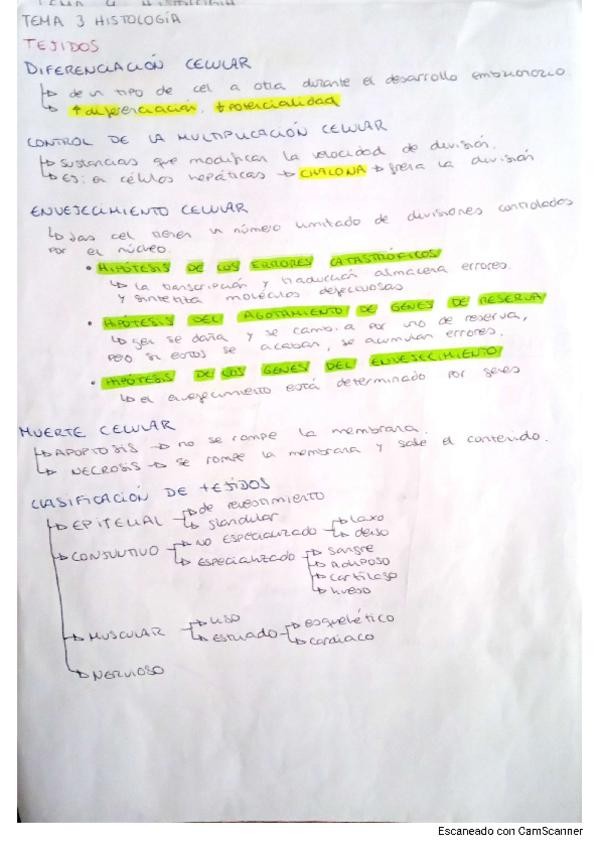 TEMA 3 HISTOLOGÍA
TEJIDOS
DIFERENCIACIÓN CELULAR
↳ de un tipo de cel a otra durante el desarrollo embrionario.
↳ ↑ diferenciación, ↓ potencialidad
CONTROL DE LA MULTIPLICACIÓN CELULAR
↳ sustancias que modifican la velocidad de división.
↳ EJ: en células hepáticas → CHALONA → frena la división
ENVEJECIMIENTO CELULAR
↳ las cel tienen un número limitado de divisiones controlados
por el núcleo.
• HIPÓTESIS DE LOS ERRORES CATASTRÓFICOS
↳ la transcripción y traducción almacena errores.
y sintetiza moléculas defectuosas
• HIPÓTESIS DEL AGOTAMIENTO DE GENES DE RESERVA
↳ gen se daña y se cambia por uno de reserva,
pero si estos se acaban, se acumulan errores.
• HIPÓTESIS DE LOS GENES DEL ENVEJECIMIENTO
↳ el envejecimiento está determinado por genes
MUERTE CELULAR
↳ APOPTOSIS → no se rompe la membrana.
↳ NECROSIS → se rompe la membrana y sale el contenido.
CLASIFICACIÓN DE TEJIDOS
→ EPITELIAL → de revestimiento
↳ glandular
→ CONJUNTIVO → NO ESPECIALIZADO → laxo
↳ denso
↳ ESPECIALIZADO → sangre
→ ADIPOSO
→ cartílago
↳ hueso
→ MUSCULAR → LISO
↳ estriado → esquelético
↳ cardiaco
↳ NERVIOSO
Escaneado con CamScanner